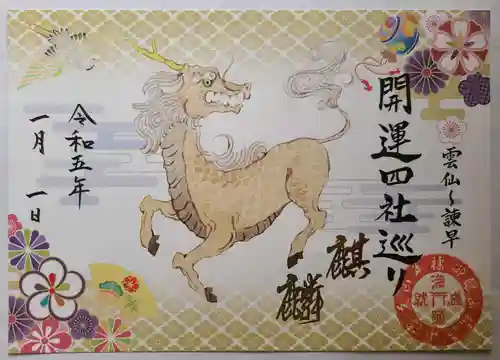 開運四社巡り
雲仙〜諫早
麒麟
令和五年
一月 一日